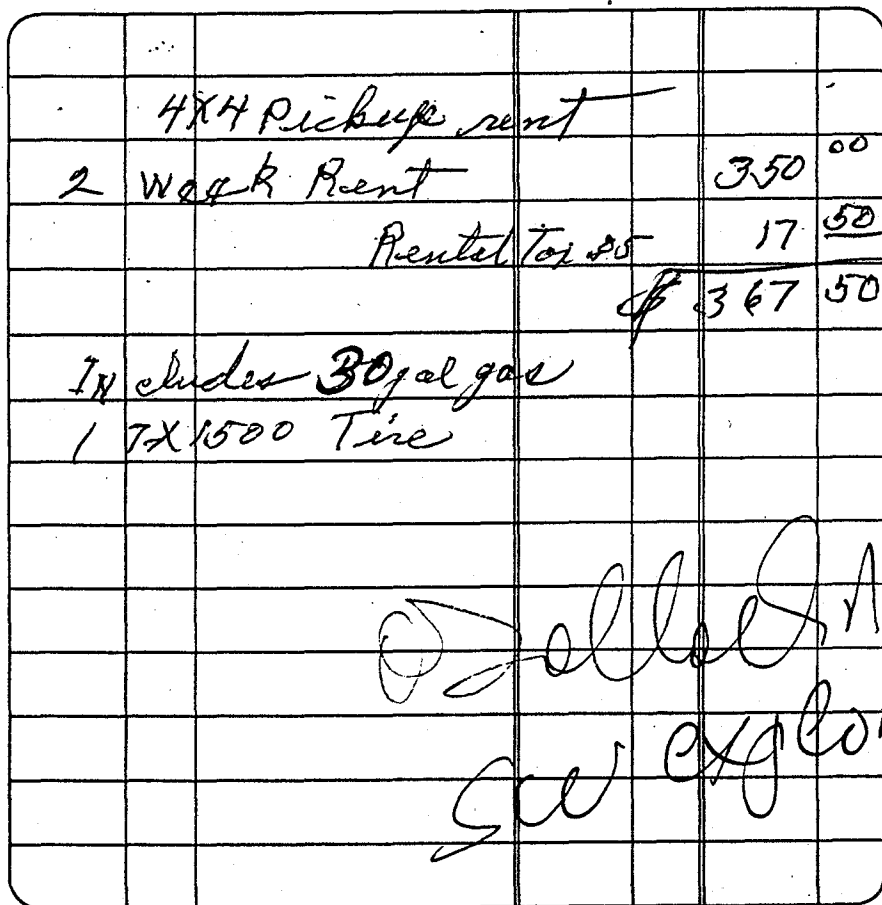 4X4 Pickup rent
2 Week Rent 350 00
Rental Tax 17 50
$ 367 50
INcludes 30 gal gas
1 7X1500 Tire
SW